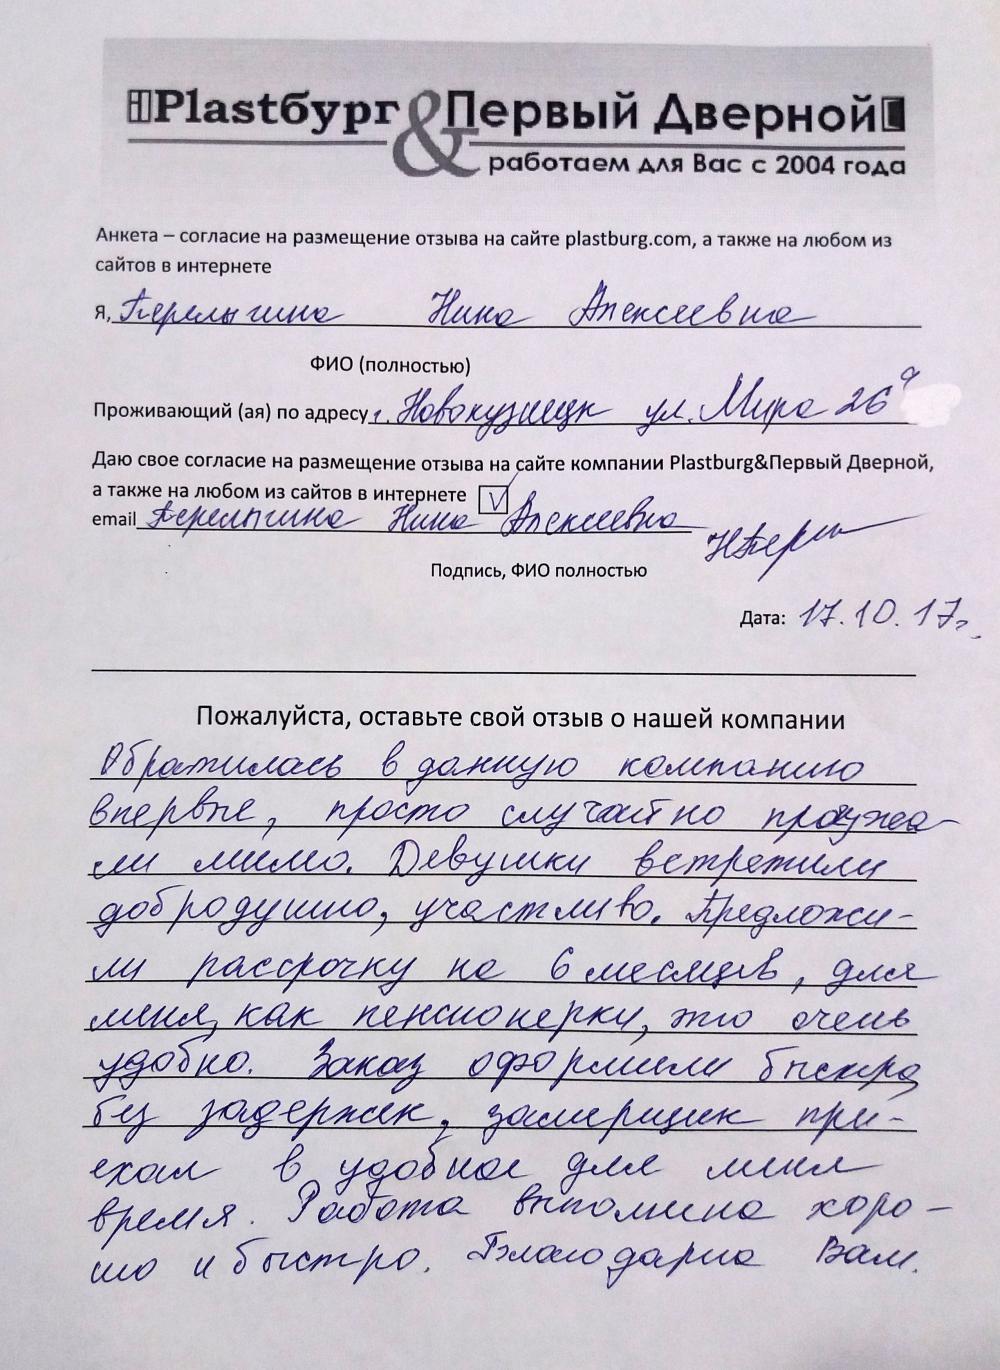 Plastбург & Первый Дверной
работаем для Вас с 2004 года
Анкета – согласие на размещение отзыва на сайте plastburg.com, а также на любом из
сайтов в интернете
Я, Перелыгина Нина Алексеевна
ФИО (полностью)
Проживающий (ая) по адресу г. Новокузнецк ул. Мира 26а
Даю свое согласие на размещение отзыва на сайте компании Plastburg&Первый Дверной,
а также на любом из сайтов в интернете V
email Перелыгина Нина Алексеевна
Подпись, ФИО полностью
Дата: 17.10.17г.
Пожалуйста, оставьте свой отзыв о нашей компании
Обратилась в данную компанию
впервые, просто случайно проезжа-
ли мимо. Девушки встретили
добродушно, участливо. Предложи-
ли рассрочку на 6 месяцев, для
меня, как пенсионерку, это очень
удобно. Заказ оформили быстро,
без задержек, замерщик при-
ехал в удобное для меня
время. Работа выполнена хоро-
шо и быстро. Благодарна Вам.